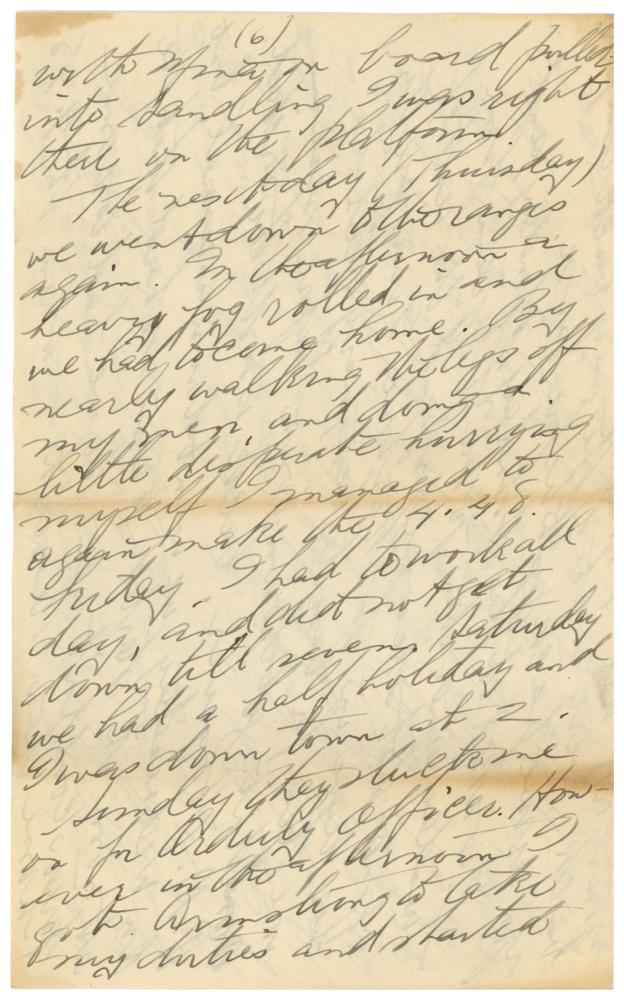 (6)
with on board pulled
into Sandling I was right
there on the platform.
The next day (Thursday)
we went down to the ranges
again. In the afternoon a
heavy fog rolled in and
we had to come home. By
nearly walking the legs off
my men, and doing a
little desperate hurrying
myself I managed to
again make the 4.48.
Friday I had to work all
day, and did not get
down till seven. Saturday
we had a half holiday and
I was down town at 2.
Sunday they stuck me
on for Orderly Officer. How-
ever in the afternoon I
got Armstrong to take
my duties and started